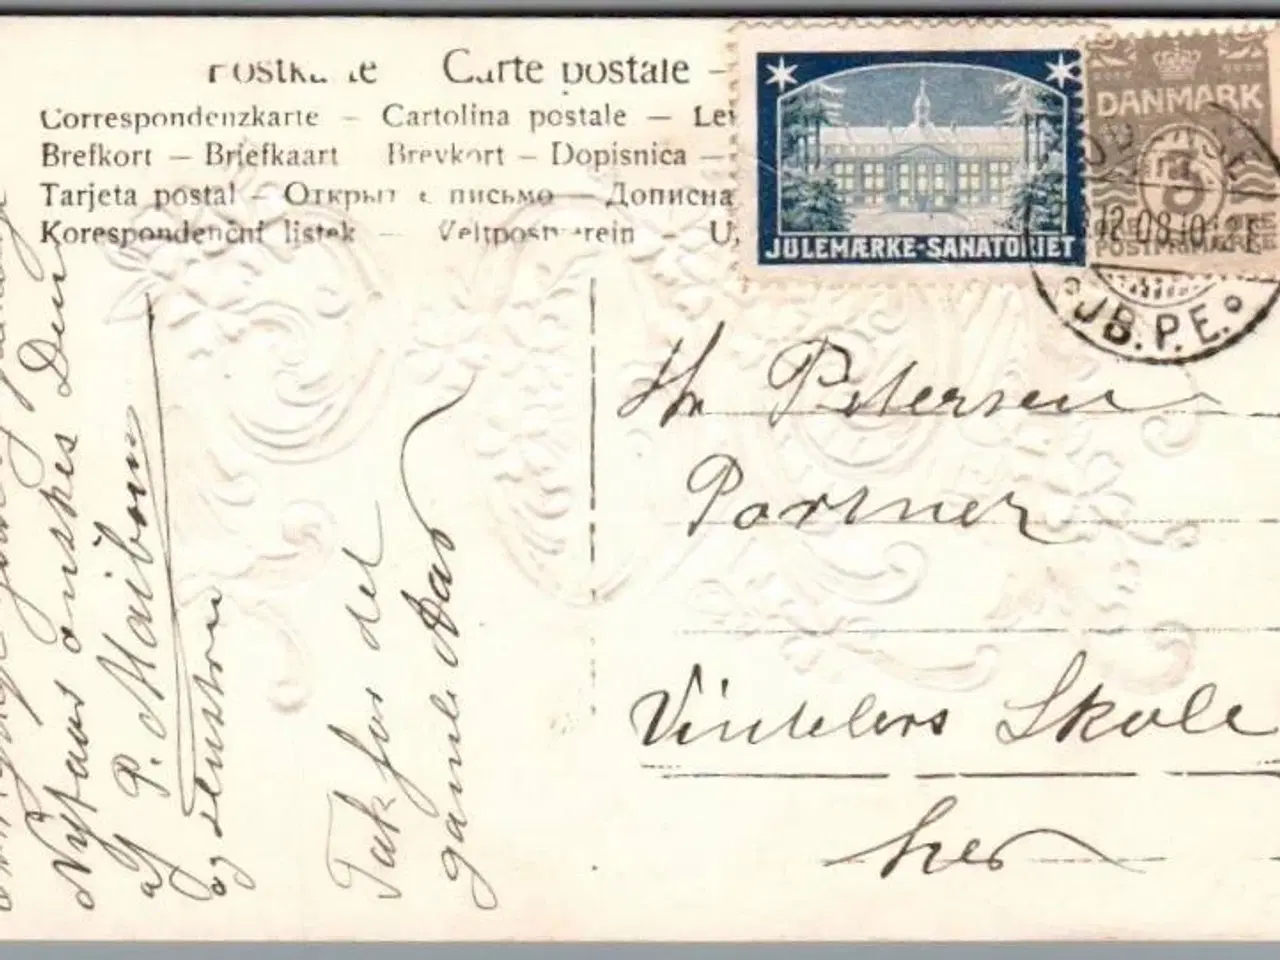 Postkarte Carte postale –
Correspondenzkarte – Cartolina postale – Lev
Brefkort – Briefkaart Brevkort – Dopisnica –
Tarjeta postal – Открытое письмо – Дописна
Korespondenční listek – Veltpostverein – U
JULEMÆRKE-SANATORIET
DANMARK
5
ØRE
POSTFRIMÆRKE
ODENSE
12.08.10
JB.P.E.
Hr Petersen
Portner
Vintelers Skole
her
Nytaar ønskes Dem
af P. Maibom
og Hustru
Tak for det
gamle Aar